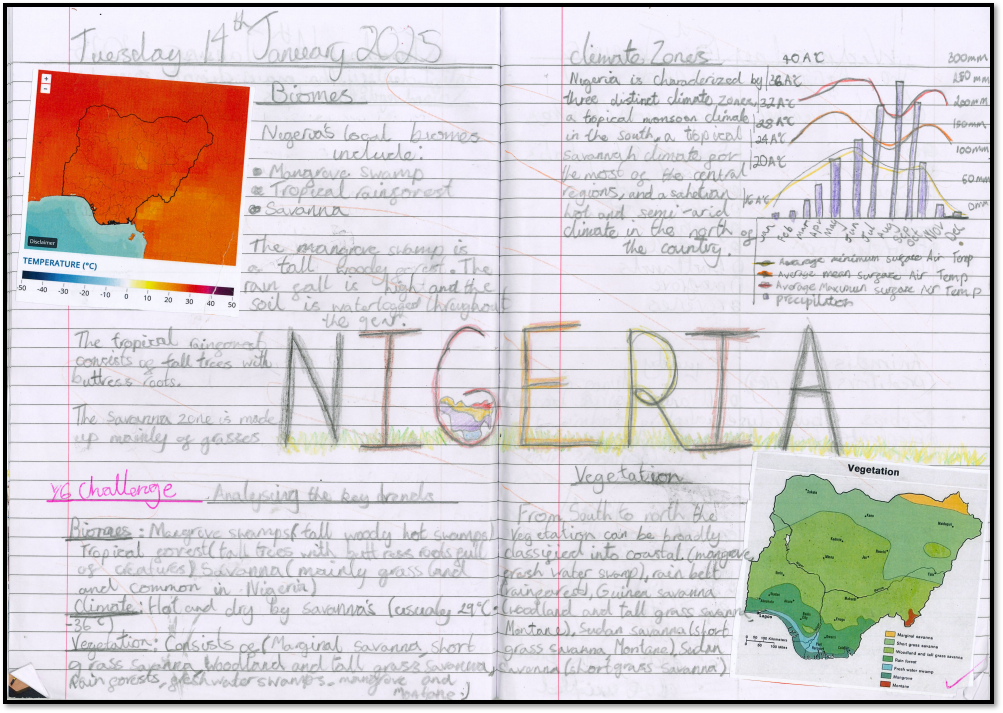 Tuesday 14th January 2025
Biomes
Nigeria's local biomes
include:
Mangrove swamp
Tropical rainforest
Savanna
The mangrove swamp is
a tall woody forest. The
rain fall is high and the
soil is waterloged throughout
the year.
+
−
Disclaimer
TEMPERATURE (°C)
-50 -40 -30 -20 -10 0 10 20 30 40 50
The tropical rainforest
consists of tall trees with
buttress roots.
The savanna zone is made
up mainly of grasses
climate Zones
Nigeria is characterized by
three distinct climate zones,
a topical monsoon climate
in the south, a topical
savannah climate for
the most of the central
regions, and a sahelian
hot and semi-arid
climate in the north of
the country.
40A°C
36A°C
32A°C
28A°C
24A°C
20A°C
16A°C
300mm
250mm
200mm
150mm
100mm
50mm
0mm
Jan Feb mar Apr May Jun Jul Aug Sep Oct Nov Dec
Average minimum surface Air Temp
Average mean surface Air Temp
Average Maximum surface Air Temp
precipitation
NIGERIA
Y6 Challenge
Analysing the key trends
Biomes: Mangrove swamps(tall woody hot swamps)
Tropical forest(tall trees with buttress roots full
of creatures) Savanna (mainly grassland
and common in Nigeria)
Climate: Hot and dry by savanna's (usualy 29°C
-36°C)
Vegetation: Consists of (Marginal savanna, short
grass savanna, woodland and tall grass savanna,
Rain forests, freshwater swamps, mangrove and
Montane:)
Vegetation
From South to north the
vegetation can be broadly
classified into coastal (mangrove,
fresh water swamp), rain belt
(rainforest), Guinea savanna
(woodland and tall grass savanna
Montane), Sudan savanna (short
grass savanna, Montane), Sudan
savanna (short grass savanna)
Vegetation
Lagos
0 50 100 Kilometers
0 50 100 Miles
Marginal savanna
Short grass savanna
Woodland and tall grass savanna
Rain forest
Fresh water swamp
Mangrove
Montane